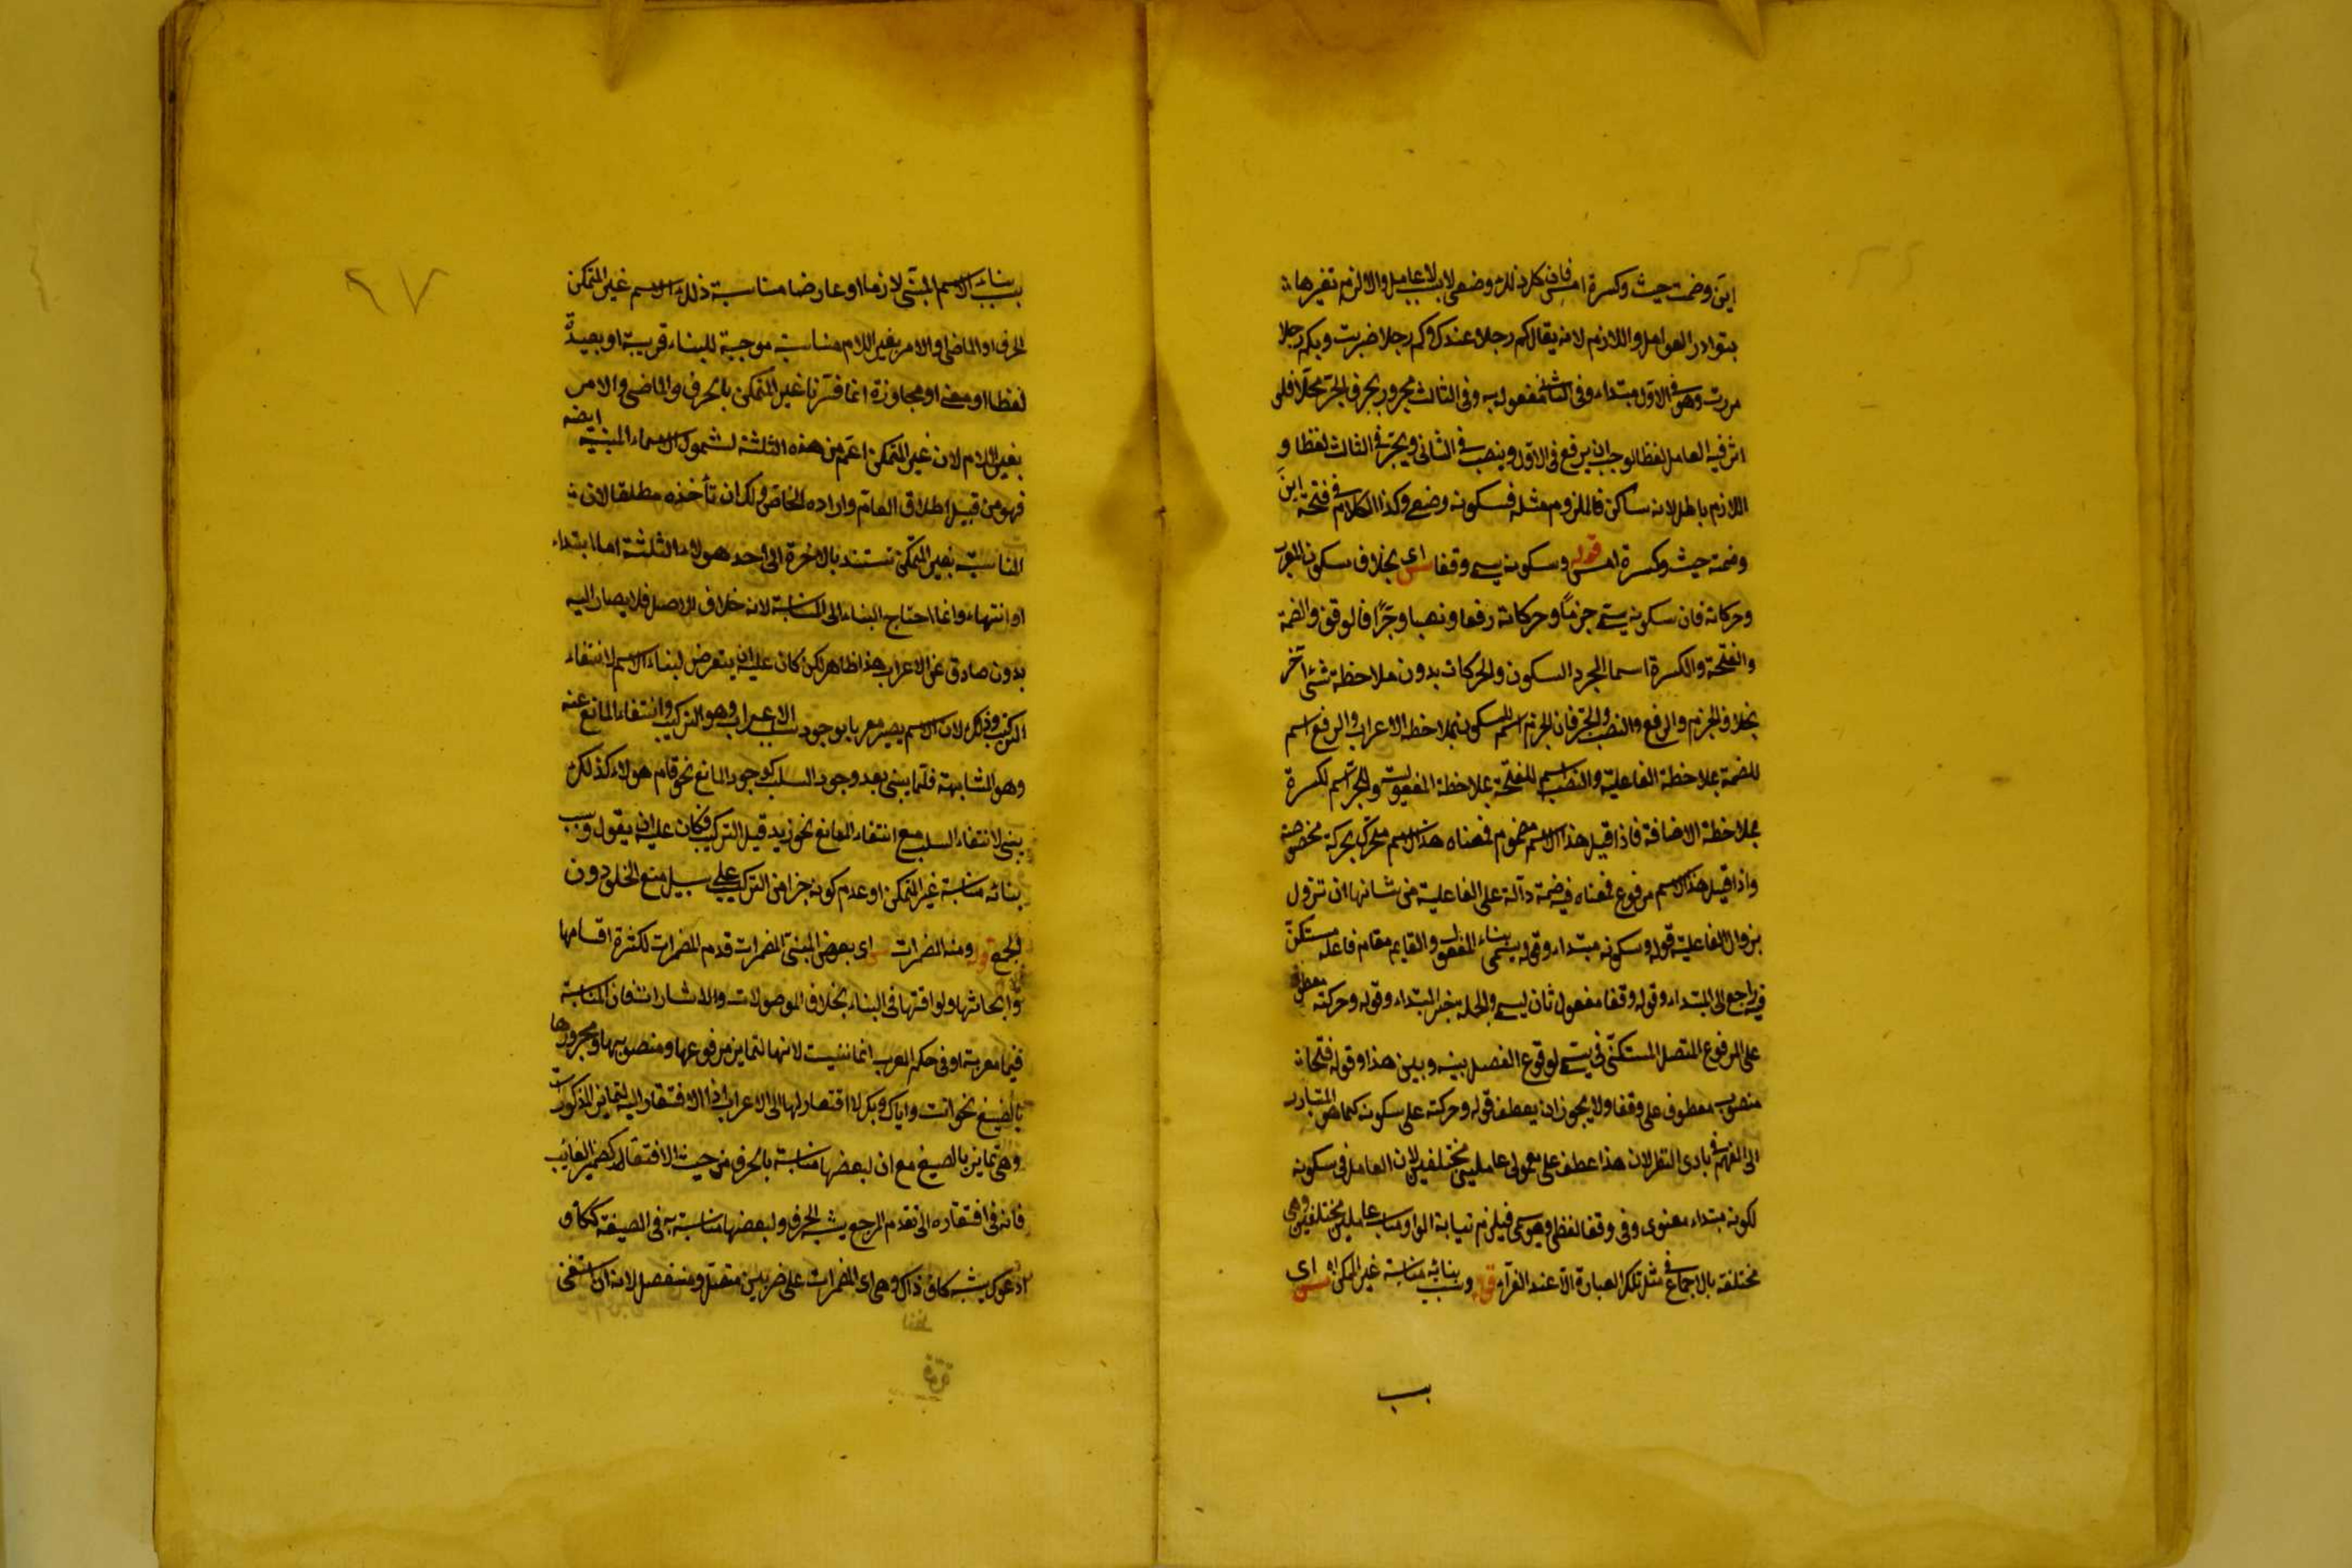 اين وضمة حيث وكسرة امس فان كل ذلك وضعى لا بلا عامل والا لزم تغيرها
بتوارد العوامل واللازم لانه يقال كم رجلا عندك وكم رجلا ضربت وبكم رجلا
مررت وهى فى الاول مبتداء وفى الثانى مفعول به وفى الثالث مجرور بحرف الجر محلا فلو
اثر فيه العامل لفظا لوجب ان يرفع فى الاول وينصب فى الثانى ويجر فى الثالث لفظا و
اللازم باطل لانه ساكن فالملزوم مثله فسكونه وضعى وكذا الكلام فى فتحة اين
وضمة حيث وكسرة امس قوله وسكونه يسمى وقفا ش اى بخلاف سكون المعرب
وحركاته فان سكونه يسمى جزما وحركاته رفعا ونصبا وجرا فالوقف والضمة
والفتحة والكسرة اسما لمجرد السكون والحركات بدون ملاحظة شئ آخر
بخلاف الجزم والرفع والنصب والجر فان الجزم اسم للسكون بملاحظة الاعراب والرفع اسم
للضمة بملاحظة الفاعلية والنصب اسم للفتحة بملاحظة المفعولية والجر اسم لكسرة
بملاحظة الاضافة فاذا قيل هذا الاسم مضموم فمعناه هذا الاسم متحرك بحركة مخصوصة
واذا قيل هذا الاسم مرفوع فمعناه فيه ضمة دآلة على الفاعلية من شانها ان تزول
بزوال الفاعلية قوله وسكونه مبتداء وقوله يسمى بناء المفعول والقايم مقام فاعله مستكن
فيه راجع الى المبتداء وقوله وقفا مفعول ثان ليسمى والجملة خبر المبتداء وقوله وحركته معطوف
على المرفوع المتصل المستكن فى يسمى لوقوع الفصل بينه وبين هذا وقوله فتحا
منصوب معطوف على وقفا ولا يجوز ان يعطف قوله وحركته على سكونه كما هو المتبادر
الى الفهم فى بادى النظر لان هذا عطف على معمولى عاملين مختلفين لان العامل فى سكونه
لكونه مبتداء معنوى وفى وقفا لفظى وهو يسمى فيلزم نيابة الواو مناب عاملين مختلفين وهى
مختلفة بالاجماع فى مثل تلك العبارة الا عند الفرآء قوله وسبب بنائه مناسبة غير المتمكن اه ش اى
سبب
٩٧
سبب بناء الاسم المبنى لازما او عارضا مناسبة ذلك الاسم غير المتمكن
الحرف او الماضى او الامر بغير اللام مناسبة موجبة للبناء قريبة او بعيدة
لفظا او معنى او مجاوزة انما فسرنا غير المتمكن بالحرف والماضى والامر
بغير اللام لان غير المتمكن اعم من هذه الثلثة لشمول الاسماء المبنية ايضه
فهو من قبيل اطلاق العام واراده الخاص ولك ان تأخذه مطلقا لان
المناسبة بغير المتمكن تستند بالاخرة الى احد هولاء الثلثة اما ابتداء
او انتهاء وانما احتاج البناء الى المناسبة لانه خلاف الاصل فلا يصار اليه
بدون صارف عن الاعراب هذا ظاهر لكن كان عليه ان يتعرض لبناء الاسم لانتفاء
التركيب وذلك لان الاسم يصير معربا بوجود سبب الاعراب وهو التركيب وانتفاء المانع عنه
وهو المشابهة فكما يبنى بعد وجود السبب لوجود المانع نحو قام هولاء كذلك
يبنى لانتفاء السبب مع انتفاء المانع نحو زيد قبل التركيب فكان عليه ان يقول وسبب
بنائه مناسبة غير المتمكن او عدم كونه جزا من التركيب على سبيل منع الخلو دون
الجمع قوله ومنه المضمرات ش اى بعض المبنى المضمرات قدم المضمرات لكثرة اقسامها
وابحاثها ولواقتها فى البناء بخلاف الموصولات والاشارات فان المناسبة
فيها معربة او فى حكم المعرب انما بنيت لانها لتمايز مرفوعها ومنصوبها ومجرورها
بالصيغ نحو انت واياك وبك لا افتقار لها الى الاعراب اذ الافتقار اليه لتمايز المذكورات
وهى تمايز بالصيغ مع ان لبعضها مناسبة بالحرف من حيث الافتقار كضمير الغائب
فانه فى افتقاره الى تقدم المرجع يشبه الحرف ولبعضها مناسبة به فى الصيغة ككاف
ادعوك يشبه كاف ذاك وهى اى المضمرات على ضربين متصل ومنفصل لانه ان استغنى